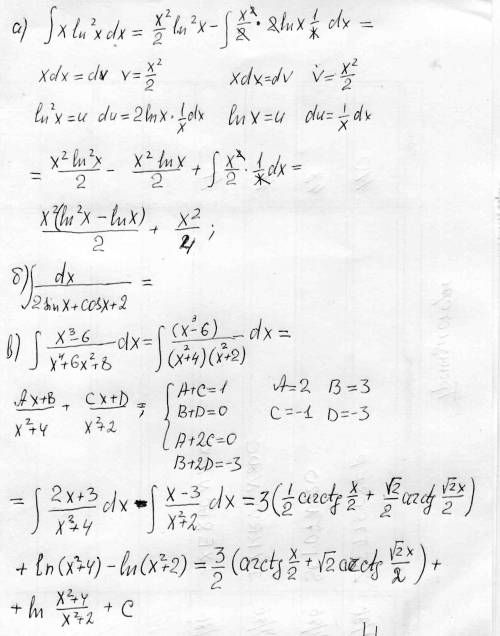 а) ∫ x ln²x dx = x²/2 ln²x − ∫ x²/2 · 2lnx 1/x dx =
xdx = dv  v = x²/2  xdx = dv  v = x²/2
ln²x = u  du = 2lnx · 1/x dx  lnx = u  du = 1/x dx
= x² ln²x/2 − x² lnx/2 + ∫ x²/2 · 1/x dx =
x²(ln²x − lnx)/2 + x²/4 ;
б) ∫ dx/(2sinx + cosx + 2) =
в) ∫ (x³−6)/(x⁴+6x²+8) dx = ∫ (x³−6)/((x²+4)(x²+2)) dx =
(Ax+B)/(x²+4) + (Cx+D)/(x²+2) ; { A+C=1  A=2  B=3
B+D=0  C=−1  D=−3
A+2C=0
B+2D=−3
= ∫ (2x+3)/(x²+4) dx − ∫ (x−3)/(x²+2) dx = 3(1/2 arctg x/2 + √2/2 arctg √2x/2)
+ ln(x²+4) − ln(x²+2) = 3/2 (arctg x/2 + √2 arctg √2x/2) +
+ ln (x²+4)/(x²+2) + C